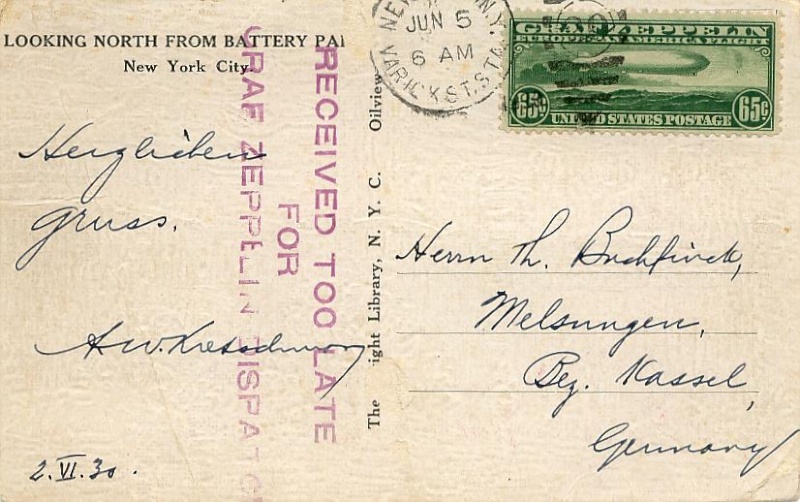 LOOKING NORTH FROM BATTERY PA
New York City
Herzlichen
gruss.
A.W. Kretschmar
2.VI.30.
RECEIVED TOO LATE
FOR
GRAF ZEPPELIN DISPATC
The ight Library, N. Y. C. Oilview
NEW N.Y.
JUN 5
6 AM
VARICK ST. STA
GRAF ZEPPELIN
EUROPE-PAN AMERICA FLIGHT
65¢ 65¢
UNITED STATES POSTAGE
Herrn Th. Buchfinck,
Melsungen,
Bez. Kassel,
Germany